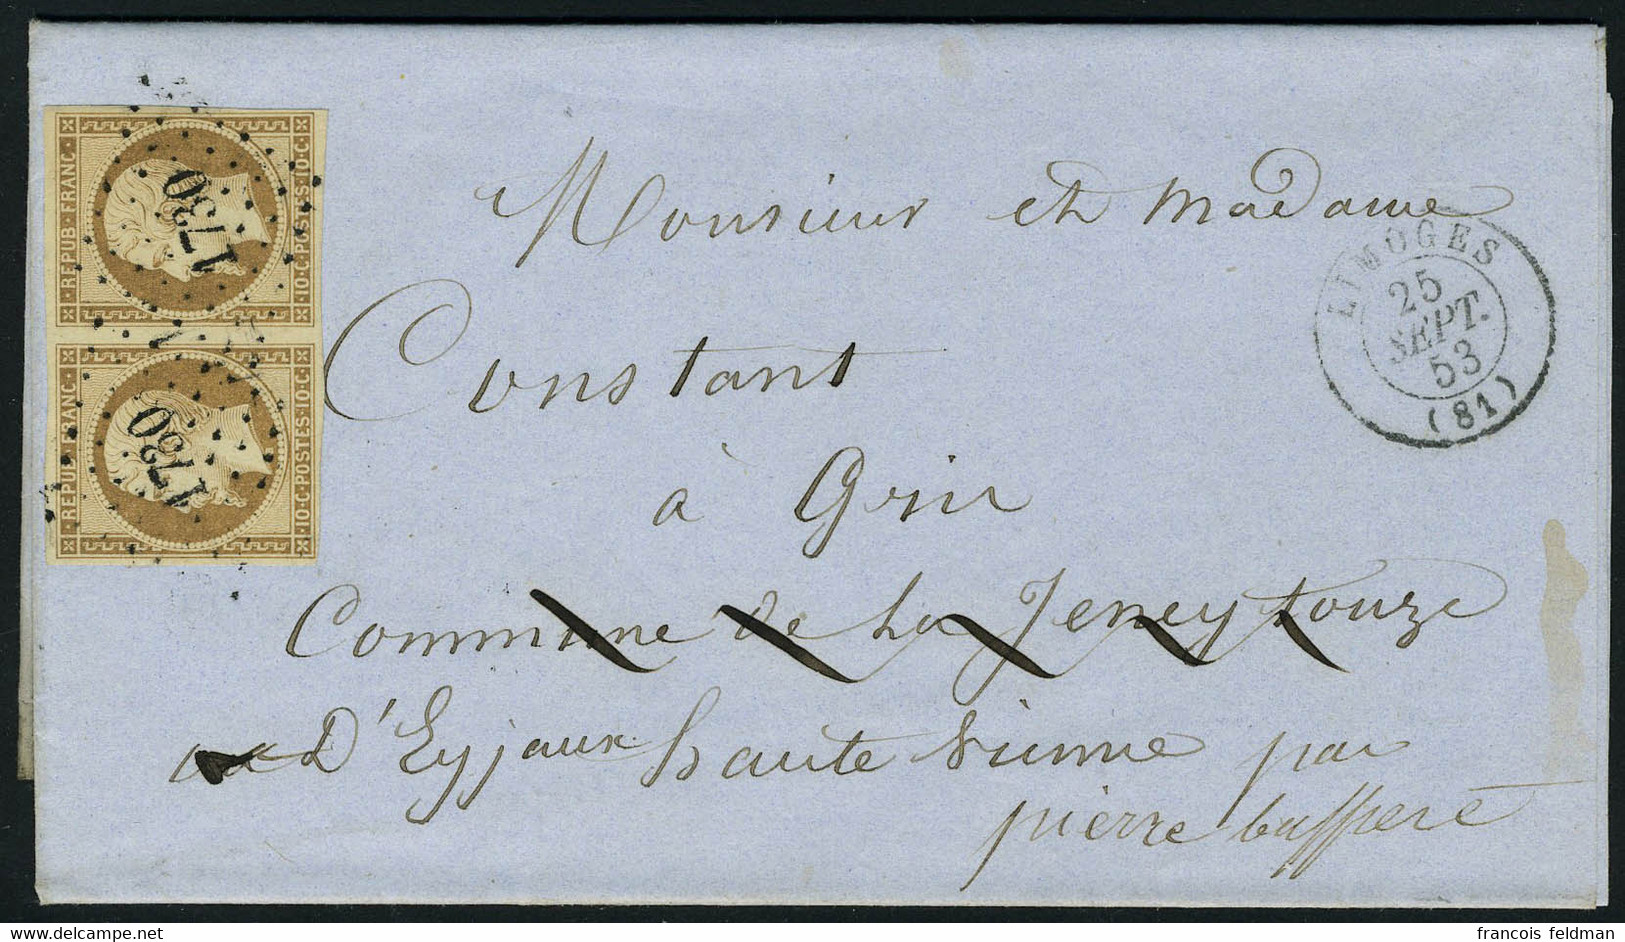 REPUB·FRANC·
10·C·POSTES·10·C·
1730
REPUB·FRANC·
10·C·POSTES·10·C·
1730
Monsieur et Madame
Constant
à Grin
Commune de la Jeneytouze
D'Eyjaux haute vienne par
pierre buffiere
LIMOGES
25
SEPT.
53
(81)
francois feldman